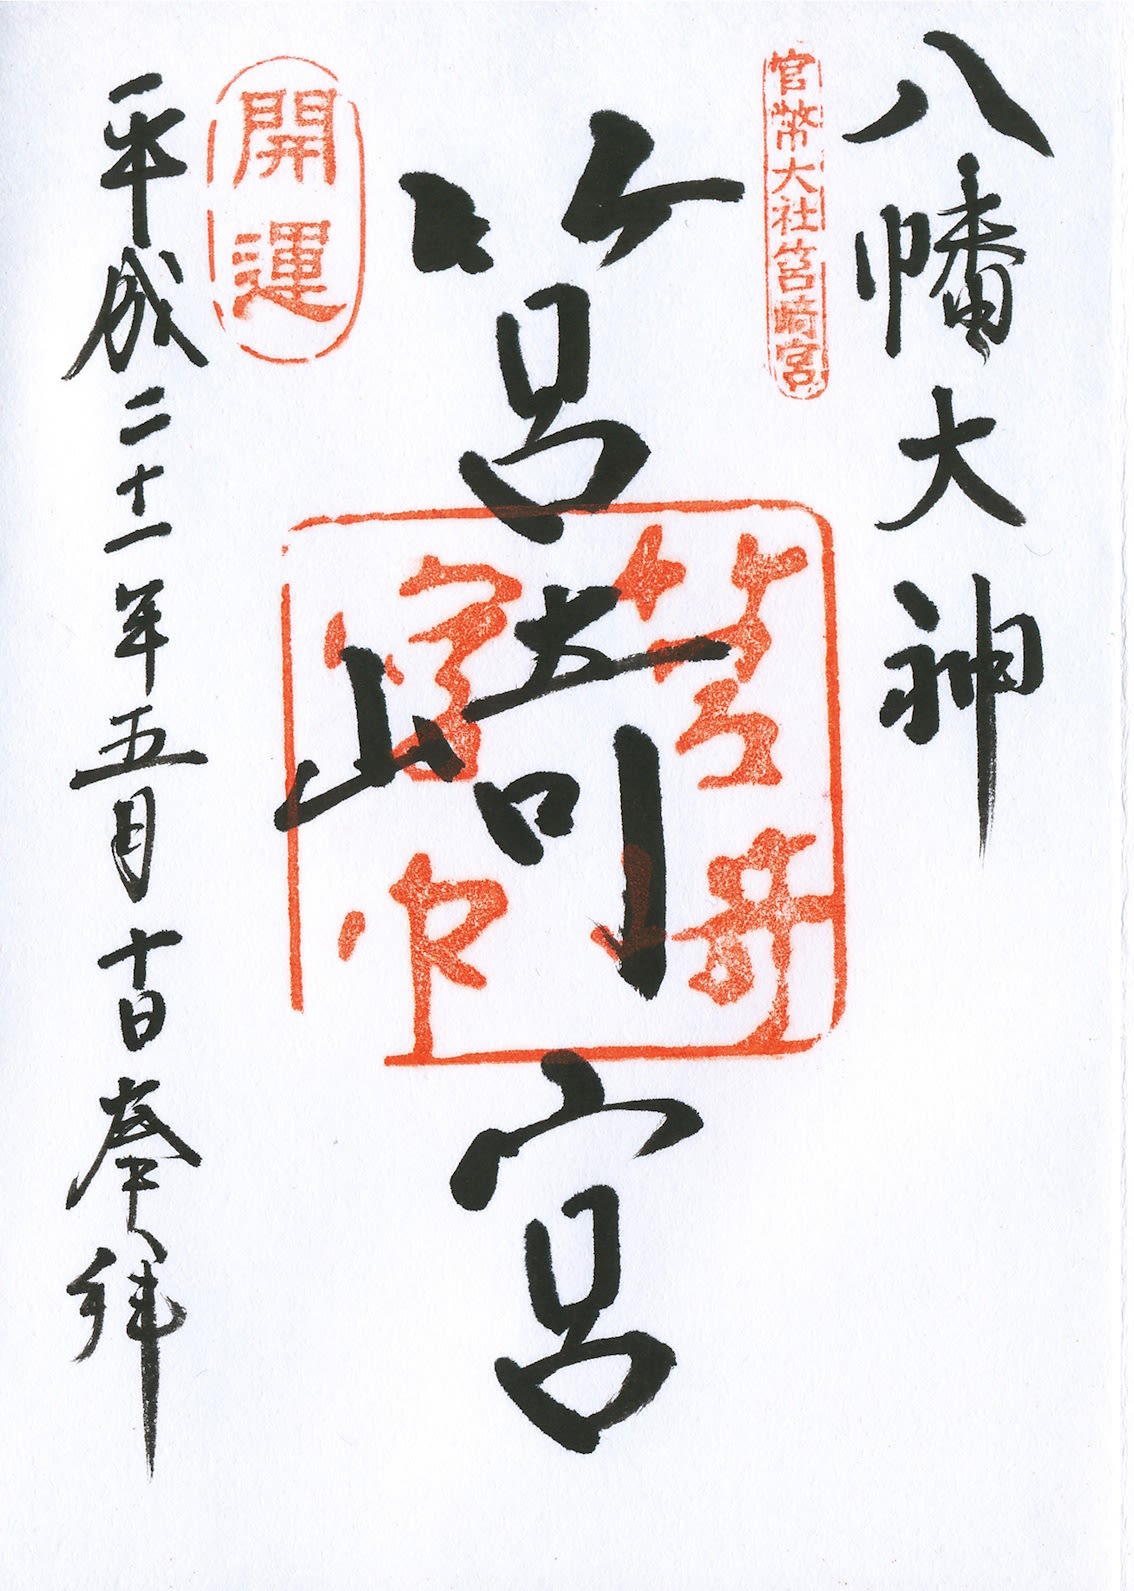 八幡大神
官幣大社筥崎宮
筥崎宮
筥崎
宮印
開運
平成二十一年五月十日奉拝